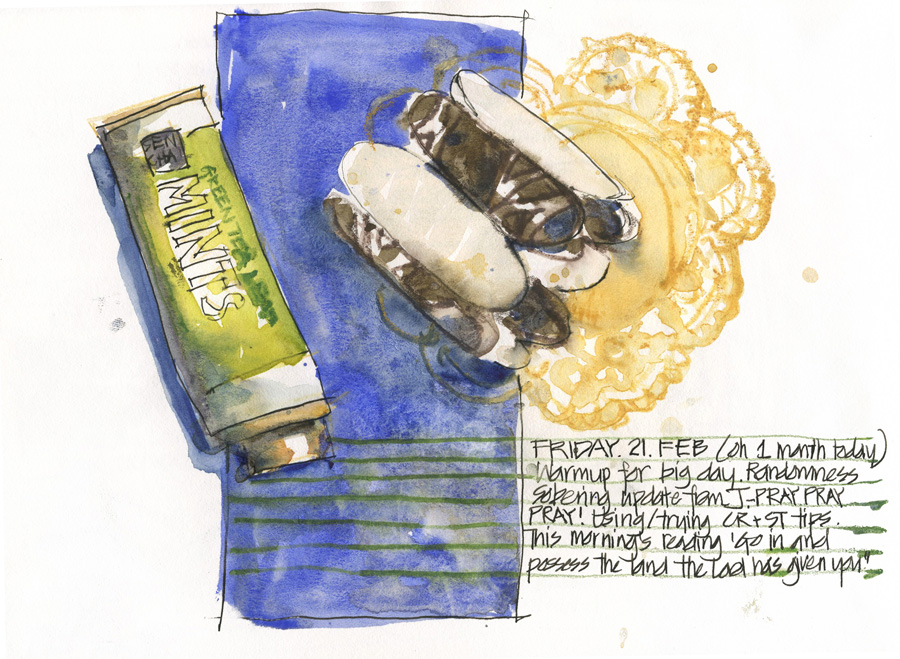 SEN
CHA
GREEN TEA
MINTS
FRIDAY. 21. FEB (oh 1 month today)
Warmup for big day. Randomness
Sobering update from J-PRAY PRAY
PRAY! Using/trying LR + ST tips.
This morning's reading 'Go in and
possess the land the Lord has given you"